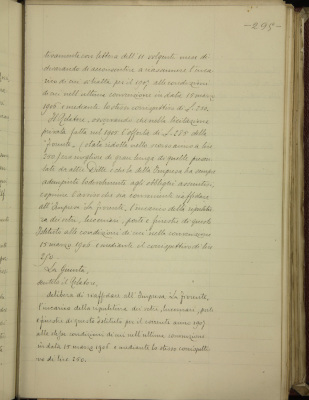 -295-
lettera dell' 11 volgente mese di
domandato di acconsentire a riassumere l'inca
rico di cui si tratta pel 1907, alle condizioni
di cui nell'ultima convenzione in data 18 marzo
1906 e mediante lo stesso corrispettivo di L. 250.
Il Relatore, che nella licitazione
privata fatta nel 1905 l'offerta di L. 250 della
"Fiorente" (stata ridotta nello scorso anno a lire
di gran lunga di quelle presen
tate da altre Ditte e che la Impresa ha sempre
adempiuto lodevolmente agli obblighi assuntisi,
esprime l'avviso che sia conveniente riaffidare
all'Impresa "La Fiorente" l'incarico della ripulitu
ra dei vetri, lucernari, porte e finestre di questo
Istituto alle condizioni di cui nella convenzione
18 marzo 1906 e mediante il corrispettivo di lire
250.
La Giunta,
sentito il Relatore,
delibera di riaffidare all'Impresa "La Fiorente",
l'incarico della ripulitura dei vetri, lucernari, porte
e finestre di questo Istituto pel corrente anno 1907
alle stesse condizioni di cui nell'ultima convenzione
in data 18 marzo 1906 e mediante lo stesso corrispetti
vo di lire 250.